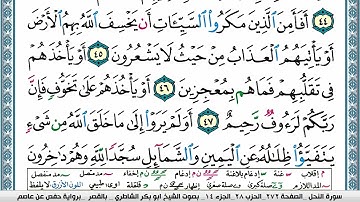 ٤٤ أَفَأَمِنَ الَّذِينَ مَكَرُوا السَّيِّئَاتِ أَن يَخْسِفَ اللَّهُ بِهِمُ الْأَرْضَ
أَوْ يَأْتِيَهُمُ الْعَذَابُ مِنْ حَيْثُ لَا يَشْعُرُونَ ٤٥ أَوْ يَأْخُذَهُمْ
فِي تَقَلُّبِهِمْ فَمَا هُم بِمُعْجِزِينَ ٤٦ أَوْ يَأْخُذَهُمْ عَلَىٰ تَخَوُّفٍ فَإِنَّ
رَبَّكُمْ لَرَءُوفٌ رَّحِيمٌ ٤٧ أَوَلَمْ يَرَوْا إِلَىٰ مَا خَلَقَ اللَّهُ مِن شَيْءٍ
يَتَفَيَّؤُا ظِلَالُهُ عَنِ الْيَمِينِ وَالشَّمَائِلِ سُجَّدًا لِّلَّهِ وَهُمْ دَاخِرُونَ
سورة النحل . الصفحة ٢٧٢ الحزب ٢٨ . الجزء ١٤ بصوت الشيخ ابو بكر الشاطري برواية حفص عن عاصم